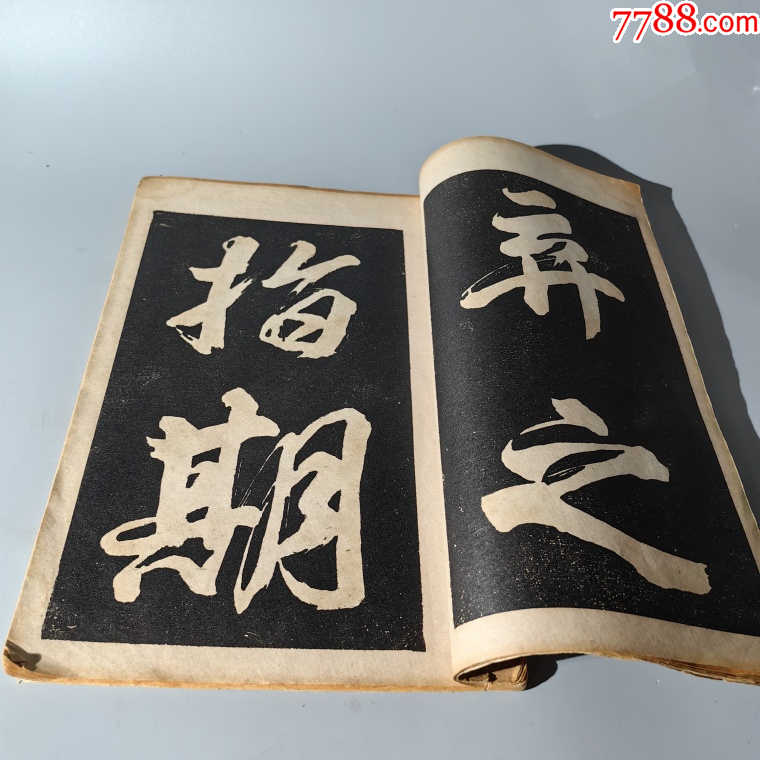 7788.com
弃之
指期